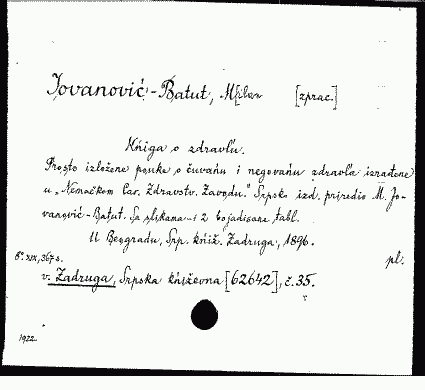 Jovanović-Batut, M[ilan [zprac.]
Kńiga o zdravľu.
Prosto izložene pouke o čuvańu i negovańu zdravľa izrađene
u „Nemačkom Car. Zdravstv. Zavodu." Srpsko izd. priredio M. Jo-
vanović-Batut. Sa slikama i 2 bojadisane tabl.
U Beogradu, Srp. kńiž. Zadruga, 1896.
8º. XIX, 367 s. pl.
v. Zadruga, Srpska kńiževna [62642], č. 35.
1922.